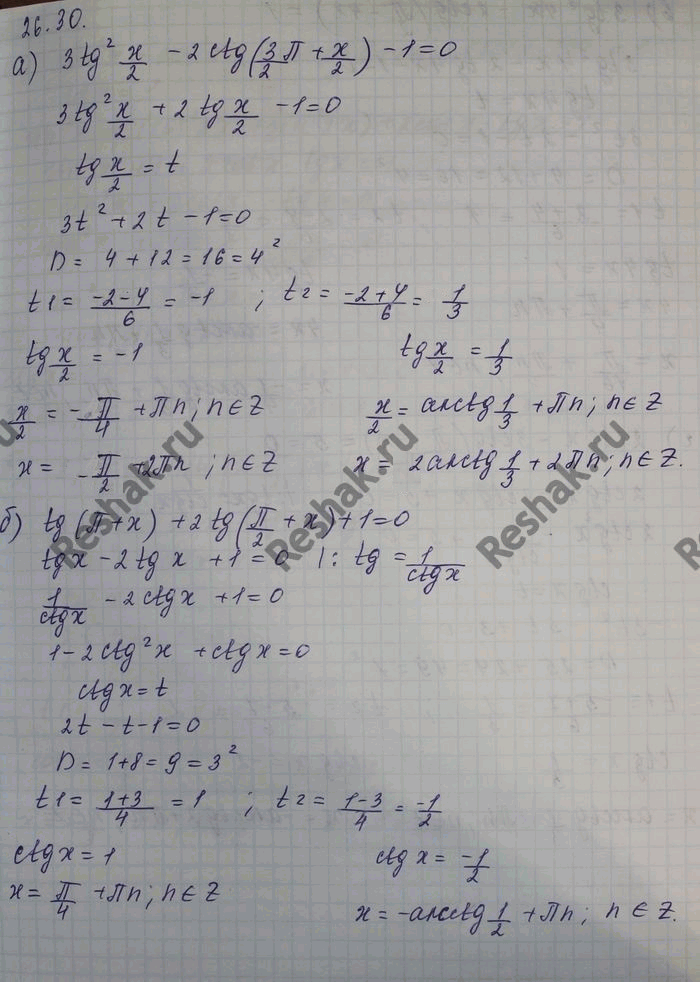 26.30.
а) 3tg² x/2 - 2ctg(3/2 π + x/2) - 1 = 0
3tg² x/2 + 2tg x/2 - 1 = 0
tg x/2 = t
3t² + 2t - 1 = 0
D = 4 + 12 = 16 = 4²
t1 = (-2-4)/6 = -1 ; t2 = (-2+4)/6 = 1/3
tg x/2 = -1 tg x/2 = 1/3
x/2 = -π/4 + πn; n ∈ Z x/2 = arctg 1/3 + πn; n ∈ Z
x = -π/2 + 2πn ; n ∈ Z x = 2arctg 1/3 + 2πn; n ∈ Z.
б) tg(π+x) + 2tg(π/2 + x) + 1 = 0
tgx - 2tg x + 1 = 0 |: tg = 1/ctgx
1/ctgx - 2ctgx + 1 = 0
1 - 2ctg²x + ctgx = 0
ctgx = t
2t - t - 1 = 0
D = 1 + 8 = 9 = 3²
t1 = (1+3)/4 = 1 ; t2 = (1-3)/4 = -1/2
ctgx = 1 ctgx = -1/2
x = π/4 + πn; n ∈ Z
x = -arcctg 1/2 + πn; n ∈ Z.
Reshak.ru
Reshak.ru
Reshak.ru
Reshak.ru